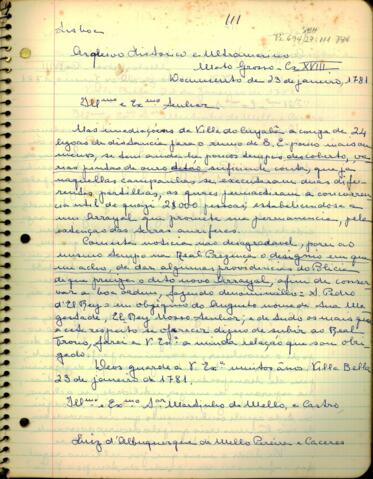 111
Lisboa
Pi 694/27:111
Arquivo Historico e Ultramarino
Mato Grosso - Cx XVIII.
Documento de 23 de janeiro, 1781
Illmo e Exmo Senhor
Nas imediações da Villa do Cuyabá a cerca de 24
legoas de distancia para o rumo de S.E. pouco mais ou
menos, se tem ainda ha poucos tempos descoberto, va-
rias pintas de ouro de tão sufficiente conta, que já
naquellas campanhas se executaram duas diffe-
rentes partilhas, as quaes
cia util de quazi 2$000 pessoas; estabelecendo-se a-
um Arrayal que promete sua permanencia, pela
extenção das terras auriferas.
Com esta noticia não desagradavel, porei ao
mesmo tempo na Real Prezença o designio em que
me acho, de dar algumas providencias de Policia
digo
var a boa ordem, S. Pedro
d'El Rey em obzequio do Augusto nome de Sua Ma-
gestade, El Rey Nosso Senhor; e de tudo os mais que
a este respeito se oferecer digno de subir ao Real
Trono, farei a V. Exa a minha relação que sou obri-
gado.
Deos guarde a V. Exa muitos anos. Villa Bella
23 de janeiro de 1781.
Illmo e Exmo Snr Martinho de Mello, e Castro,
Luiz d'Albuquerque de Mello Pereira e Caceres